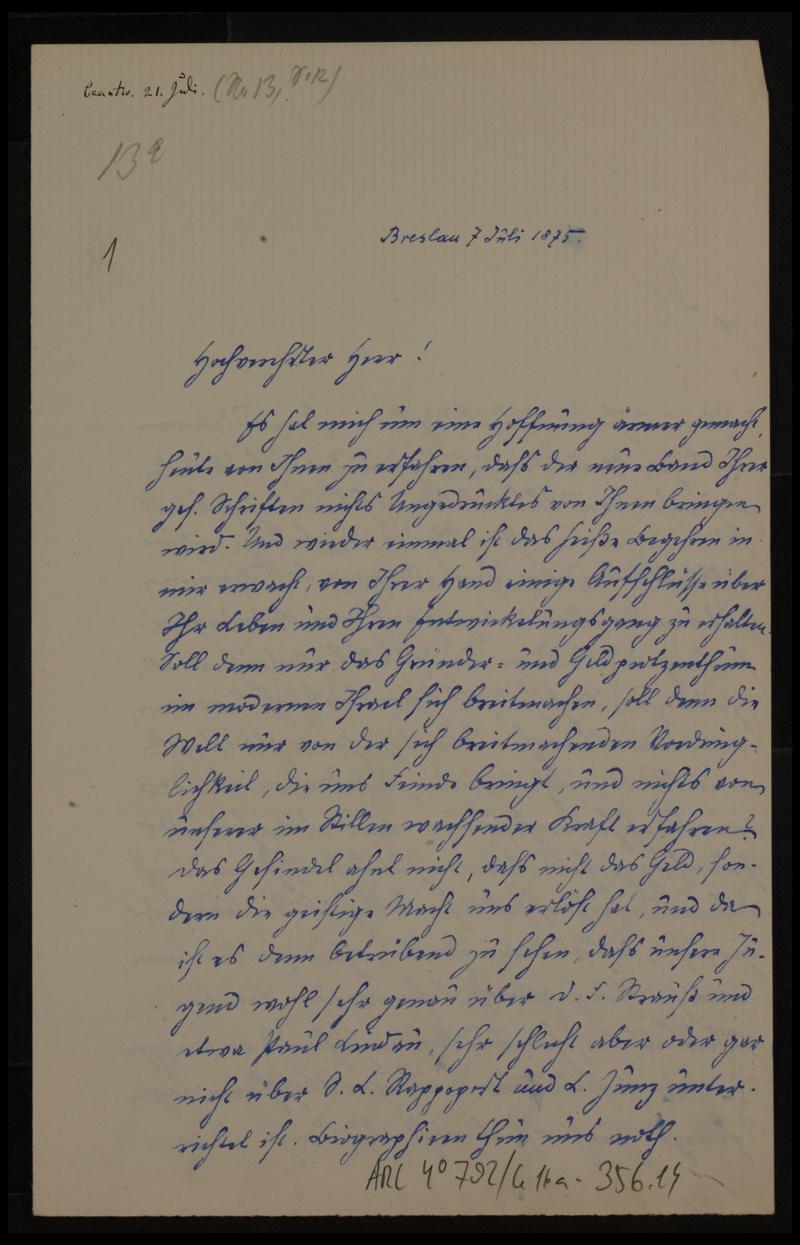 beantw. 21. Juli. (No 13,
13a
1
Breslau 7 Juli 1875.
Hochverehrter Herr!
Es hat mich um eine Hoffnung ärmer gemacht,
heute von Ihnen zu erfahren, dass der neue Band Ihrer
ges. Schriften nichts Ungedrucktes von Ihnen bringen
wird. Und wieder einmal ist das heiße Begehren in
mir erwacht, von Ihrer Hand einige Aufschlüsse über
Ihr Leben und Ihren Entwickelungsgang zu erhalten.
Soll denn nur das Gründer- und Geldprotzenthum
im modernen Israel sich breitmachen, soll denn die
Welt nur von der sich breitmachenden Vordring-
lichkeit, die uns Feinde bringt, und nichts von
unserer im Stillen wachsender Kraft erfahren?
Das Gesindel ahnt nicht, dass nicht das Geld, son-
dern die geistige Macht uns erlöst hat, und da
ist es denn betrübend zu sehen, dass unsere Ju-
gend wohl sehr genau über D. F. Strauß und
etwa Paul Lindau, sehr schlecht aber oder gar
nicht über S. L. Rappoport und L. Zunz unter-
richtet ist. Biographieen thun uns noth.
ARC 4° 792/ 356.14